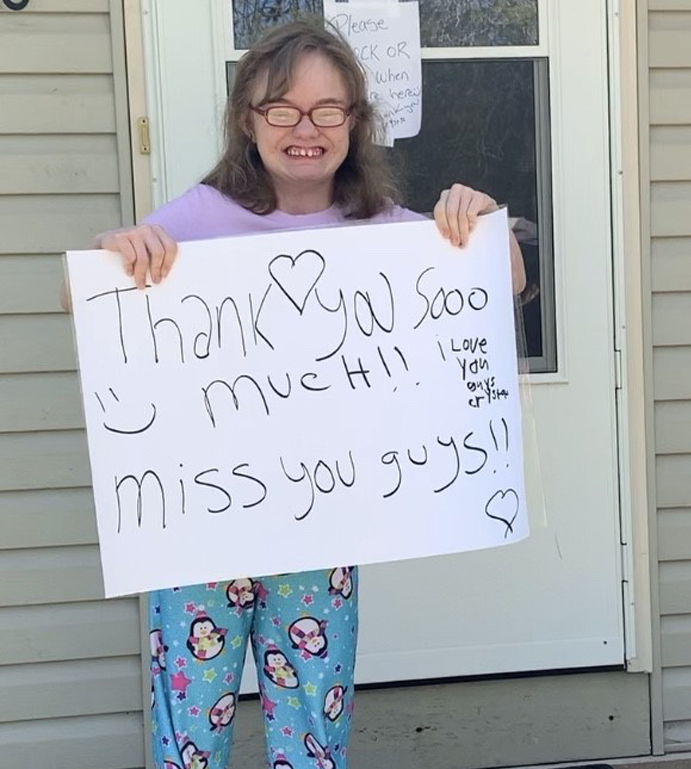 Please
OCK OR
when
here
Thank You Sooo
mucH!!
i Love
You
guys
miss you guys!!